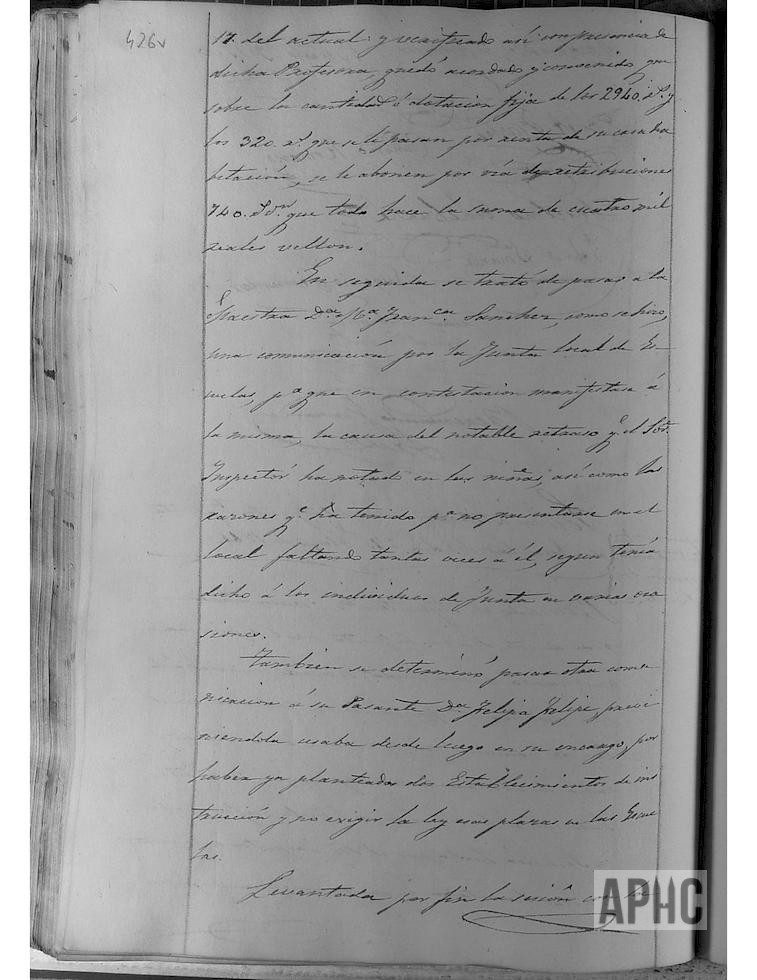 426v
17. del actual y verificado así con presencia de
dicha Profesora, quedó acordado y convenido, que
sobre la cantidad ó dotacion fija de los 2940. rs. y
los 320. rs. que se le pasan por renta de su casa ha
bitación, se le abonen por vía de retribuciones
740. rs. vn. que todo hace la suma de cuatro mil
reales vellon.
En seguida se trató de pasar a la
Maestra Da. Ma. Franca. Sanchez, como se hizo,
una comunicación por la Junta local de Es-
cuelas, pa. que en contestacion manifestase á
la misma, la causa del notable retraso qe. el Sor.
Inspector ha notado en las niñas, así como las
razones qe. ha tenido pa. no presentarse en el
local faltando tantas veces á él, segun tenía
dicho á los individuos de Junta en varias oca
siones.
Tambien se determinó pasar otra comu
nicacion á su Pasante Da. Felipa Felipe, previ
niendola cesaba desde luego en su encargo, por
haber ya planteados dos Establecimientos de ins
trucción y no exigir la ley esas plazas en las Escue
las.
Levantada por fin la sesión con la
APHC